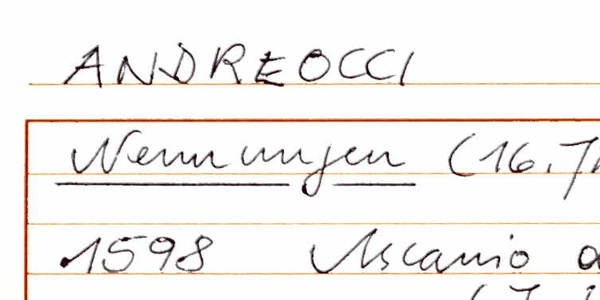 ANDREOCCI
Nennungen (16.Jh
1598 Ascanio